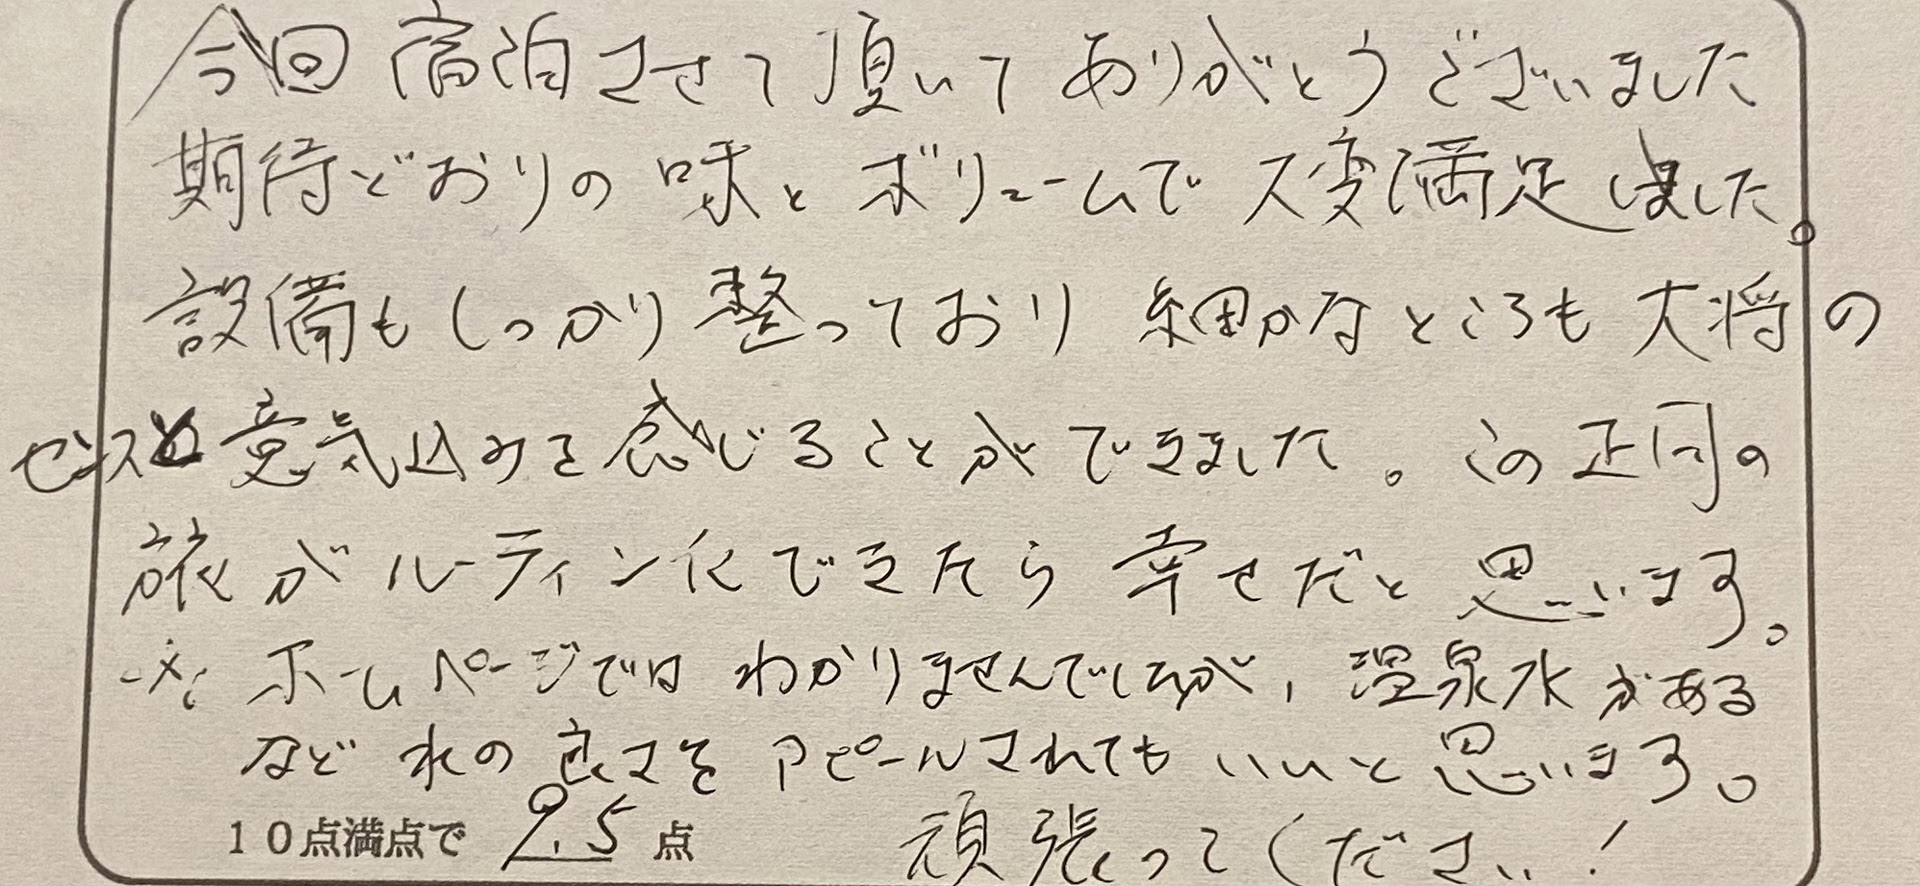 今回宿泊させて頂いてありがとうございました
期待どおりの味とボリュームで大変満足しました。
設備もしっかり整っており細かなところも大将の
センスと意気込みを感じることができました。この正月の
旅がルーティン化できたら幸せだと思います。
※ ホームページではわかりませんでしたが、温泉水がある
など水の良さをアピールされてもいいと思います。
10点満点で 9.5 点 頑張ってください!